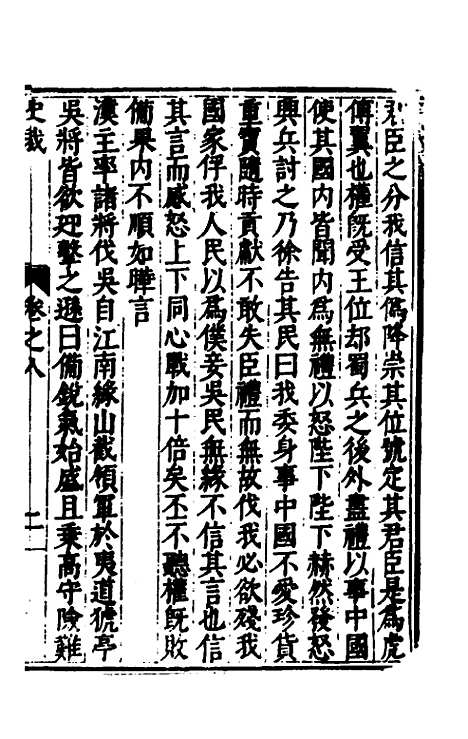 君臣之分我信其僞降崇其位號定其君臣是爲虎
傅翼也權旣受王位却蜀兵之後外盡禮以事中國
使其國内皆聞内爲無禮以怒陛下陛下赫然後怒
興兵討之乃徐告其民曰我委身事中國不愛珍貨
重寶隨時貢獻不敢失臣禮而無故伐我必欲殘我
國家俘我人民以爲僕妾吳民無緣不信其言也信
其言而感怒上下同心戰加十倍矣丕不聽權旣敗
備果内不順如曄言
漢主率諸將伐吳自江南緣山截領軍於夷道猇亭
吳將皆欲迎擊之遜曰備銳氣始盛且乗高守險難
史裁
卷之八
二